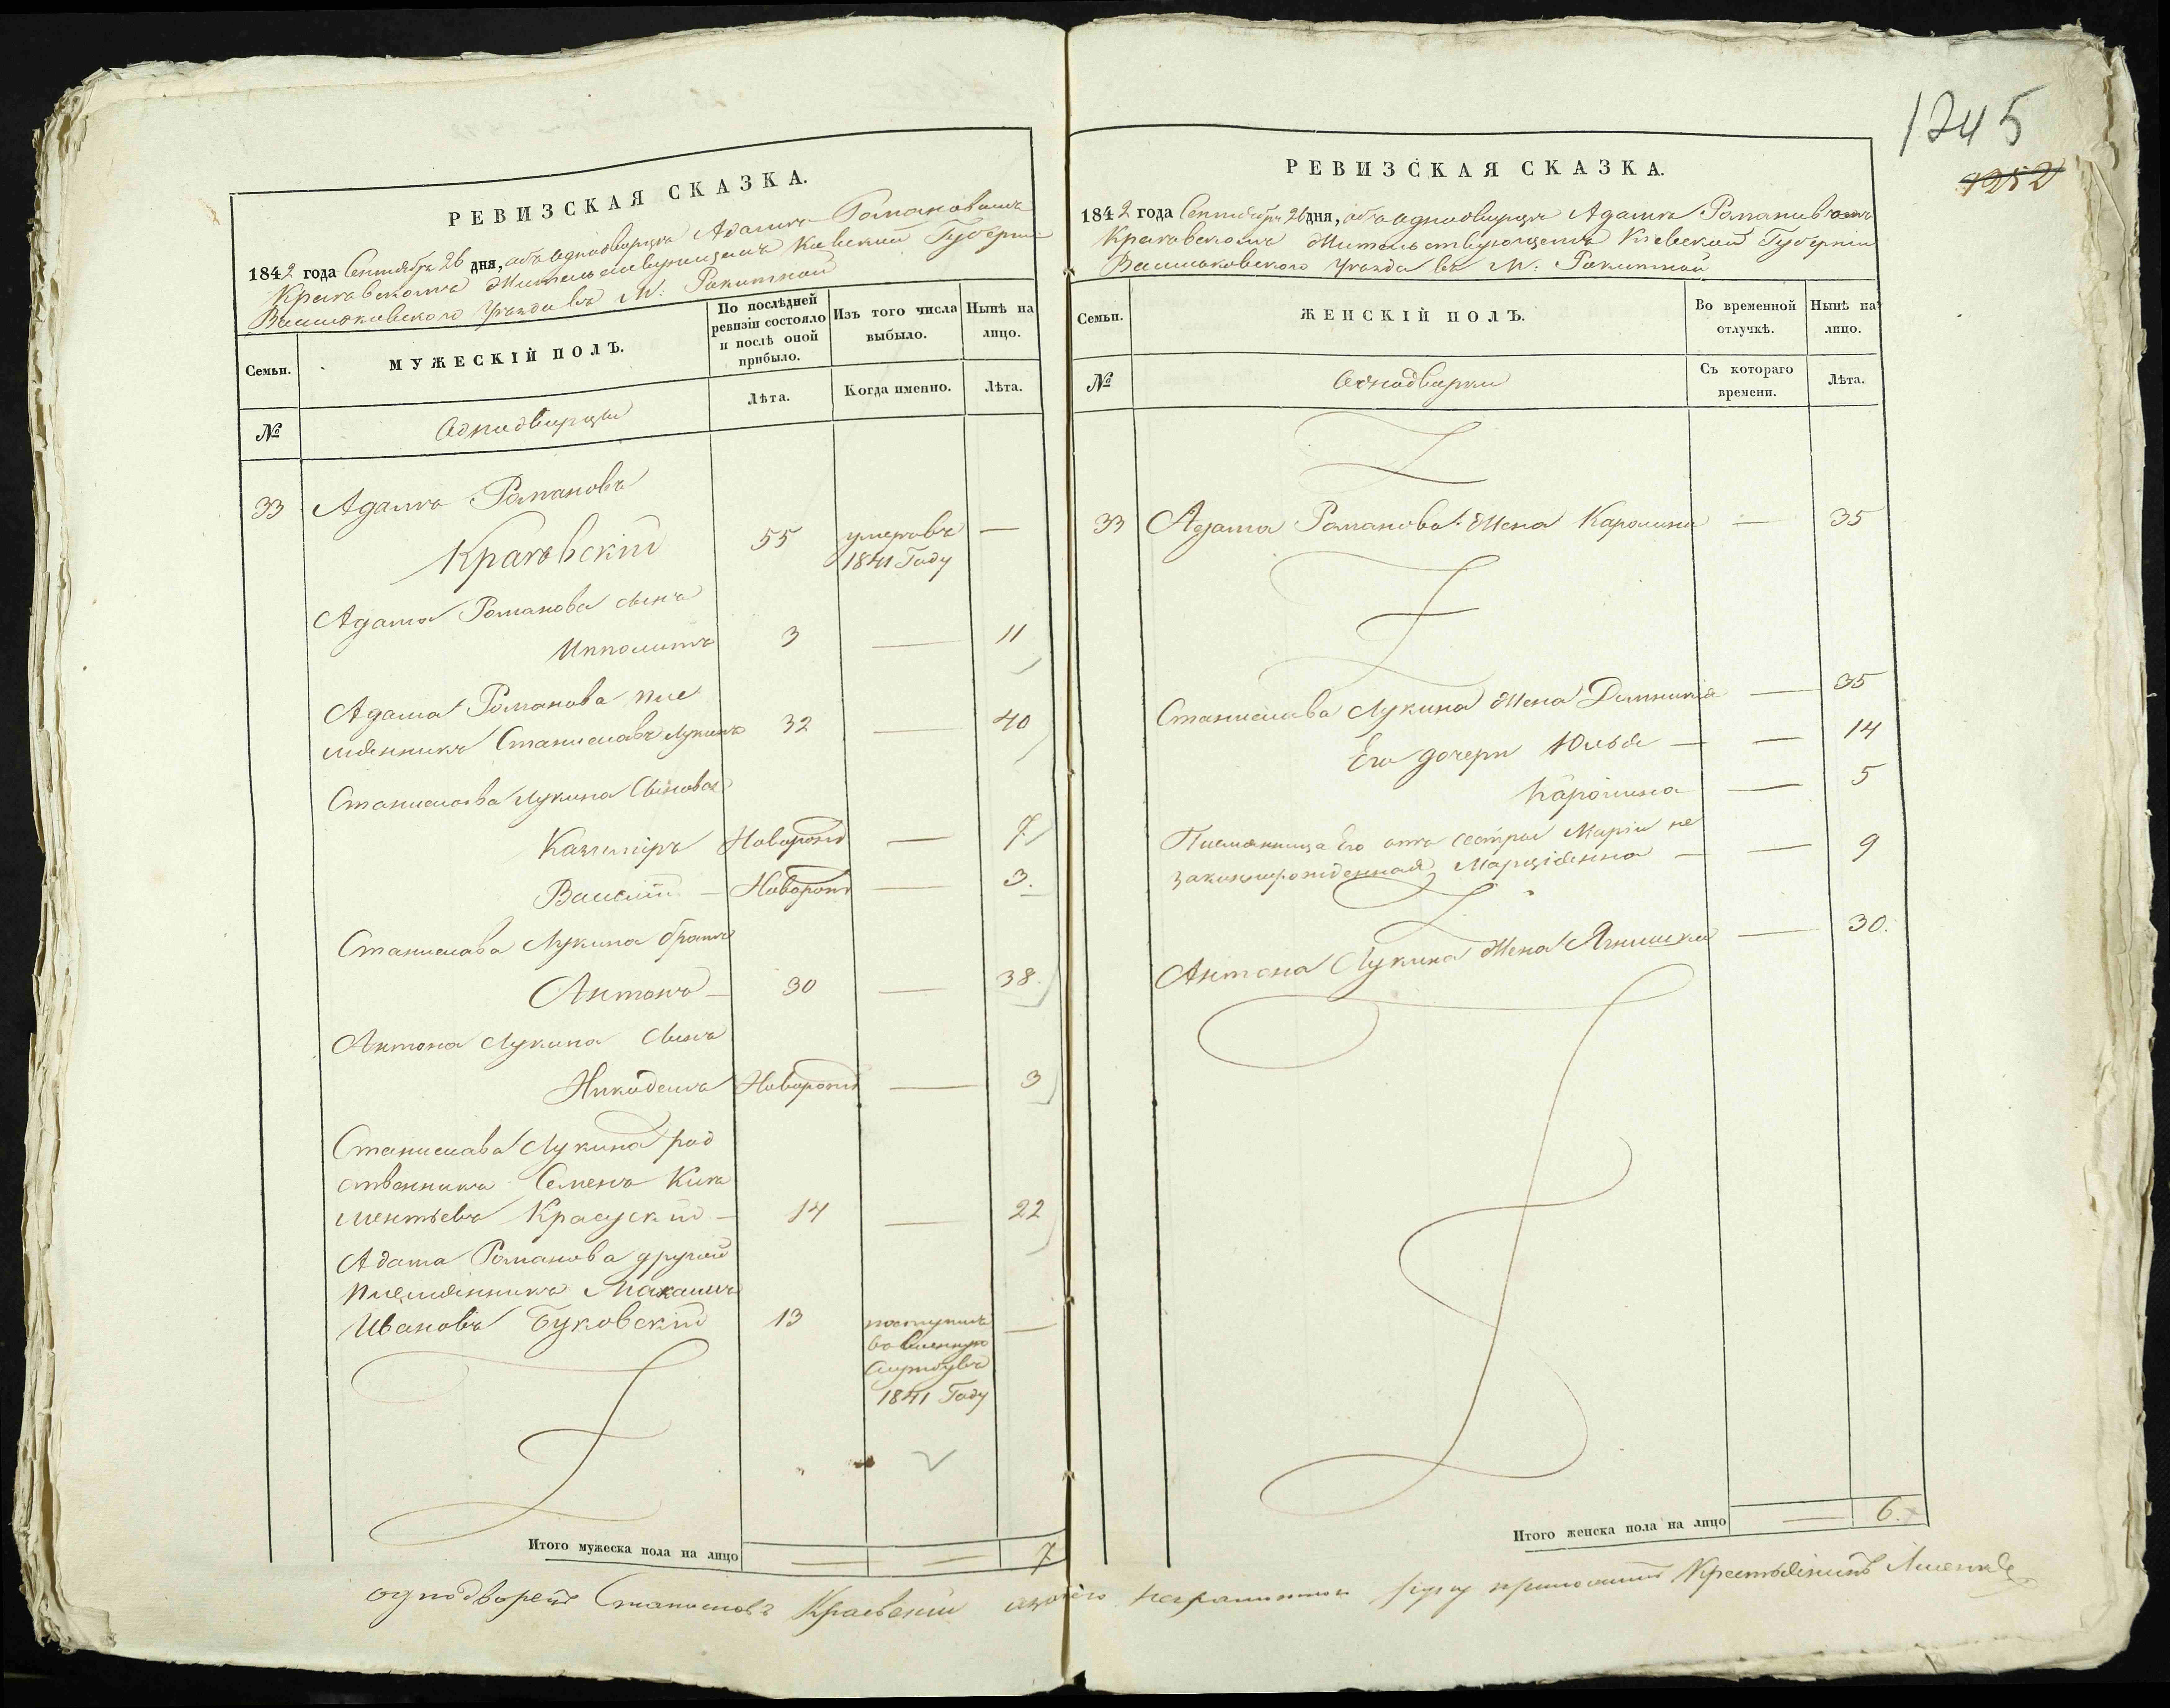 РЕВИЗСКАЯ СКАЗКА.
1842 года Сентября 26 дня, объ однодворцѣ Адамѣ Романовомъ
Краковскомъ Жительствующемъ Кіевской Губерніи
Васильковскаго Уѣзда въ М: Ракитной
Семьи.
МУЖЕСКІЙ ПОЛЪ.
По послѣдней ревизіи состояло и послѣ оной прибыло.
Изъ того числа выбыло.
Нынѣ на лицо.
№
Однодворцы
Лѣта.
Когда именно.
Лѣта.
33 Адамъ Романовъ
Краковскій 55 умеръ въ —
1841 Году
Адама Романова сынъ
Ипполитъ 3 — 11
Адама Романова пле
мянникъ Станиславъ Лукинъ 32 — 40
Станислава Лукина Сыновья
Казимиръ Новорожд — 7
Василій — Новорожд — 3.
Станислава Лукина братъ
Антонъ — 30 — 38.
Антона Лукина Сынъ
Никодимъ Новорожд — 3
Станислава Лукина род
ственникъ Семенъ Кли
ментьевъ Красускій — 14 — 22
Адама Романова другой
племянникъ
Ивановъ Буковскій 13 поступилъ —
въ военную
службу въ
1841 Году
Итого мужеска пола на лицо 7
1245
1252
РЕВИЗСКАЯ СКАЗКА.
1842 года Сентября 26 дня, объ однодворцѣ Адамѣ Романовомъ
Краковскомъ Жительствующемъ Кіевской Губерніи
Васильковскаго Уѣзда въ М: Ракитной
Семьи.
ЖЕНСКІЙ ПОЛЪ.
Во временной отлучкѣ.
Нынѣ на лицо.
№
Однодворки
Съ котораго времени.
Лѣта.
33 Адама Романова Жена Каролина — 35
Станислава Лукина Жена Домникія — 35
Его дочери Юлья — — 14
Каролина — 5
Племянница Его отъ сестры Маріи не
законнорожденная Марціянна — — 9
Антона Лукина Жена Ягнишка — 30.
Итого женска пола на лицо 6.
однодворецъ Станиславъ неграмотной руку приложилъ Крестьянинъ